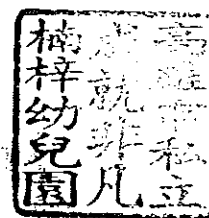 高雄市私立
成就非凡
楠梓幼兒園